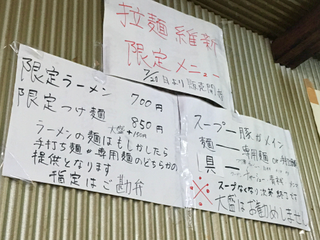 拉麺維新
限定メニュー
7/21日より
限定ラーメン 700円
限定つけ麺 850円
大盛+150円
ラーメンの麺はもしかしたら
手打ち麺か専用麺のどちらかの
提供となります
指定はご勘弁
スープ―豚がメイン
麺―専用麺 or
具―
※スープなくなり次第終了
※大盛はお勧めしません